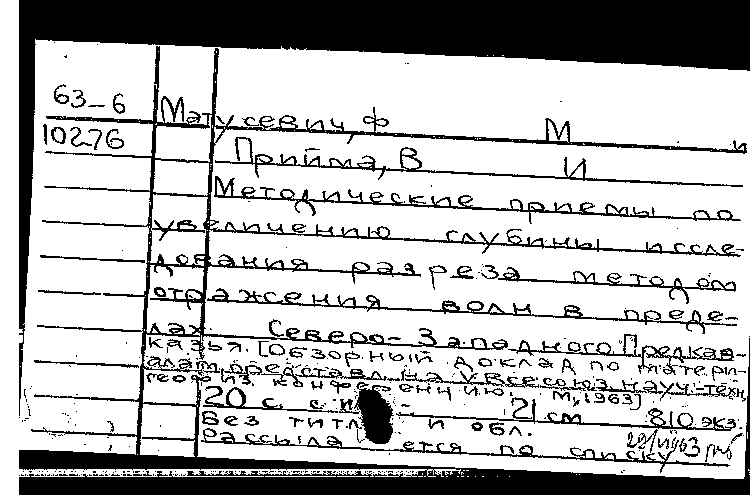 63-6
Матусевич, Ф М и
10276
Прийма, В И
Методические приемы по
увеличению глубины иссле-
дования разреза методом
отражения волн в преде-
лах Северо-Западного Предкав-
казья. [Обзорный доклад по матери-
алам, представл. на V Всесоюз. науч-техн.
геофиз. конференцию, М, 1963]
20 с. с 21 см 810 экз.
Без титл и обл.
Рассылается по списку